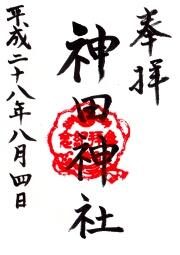 奉拝
神田神社
平成二十八年八月四日